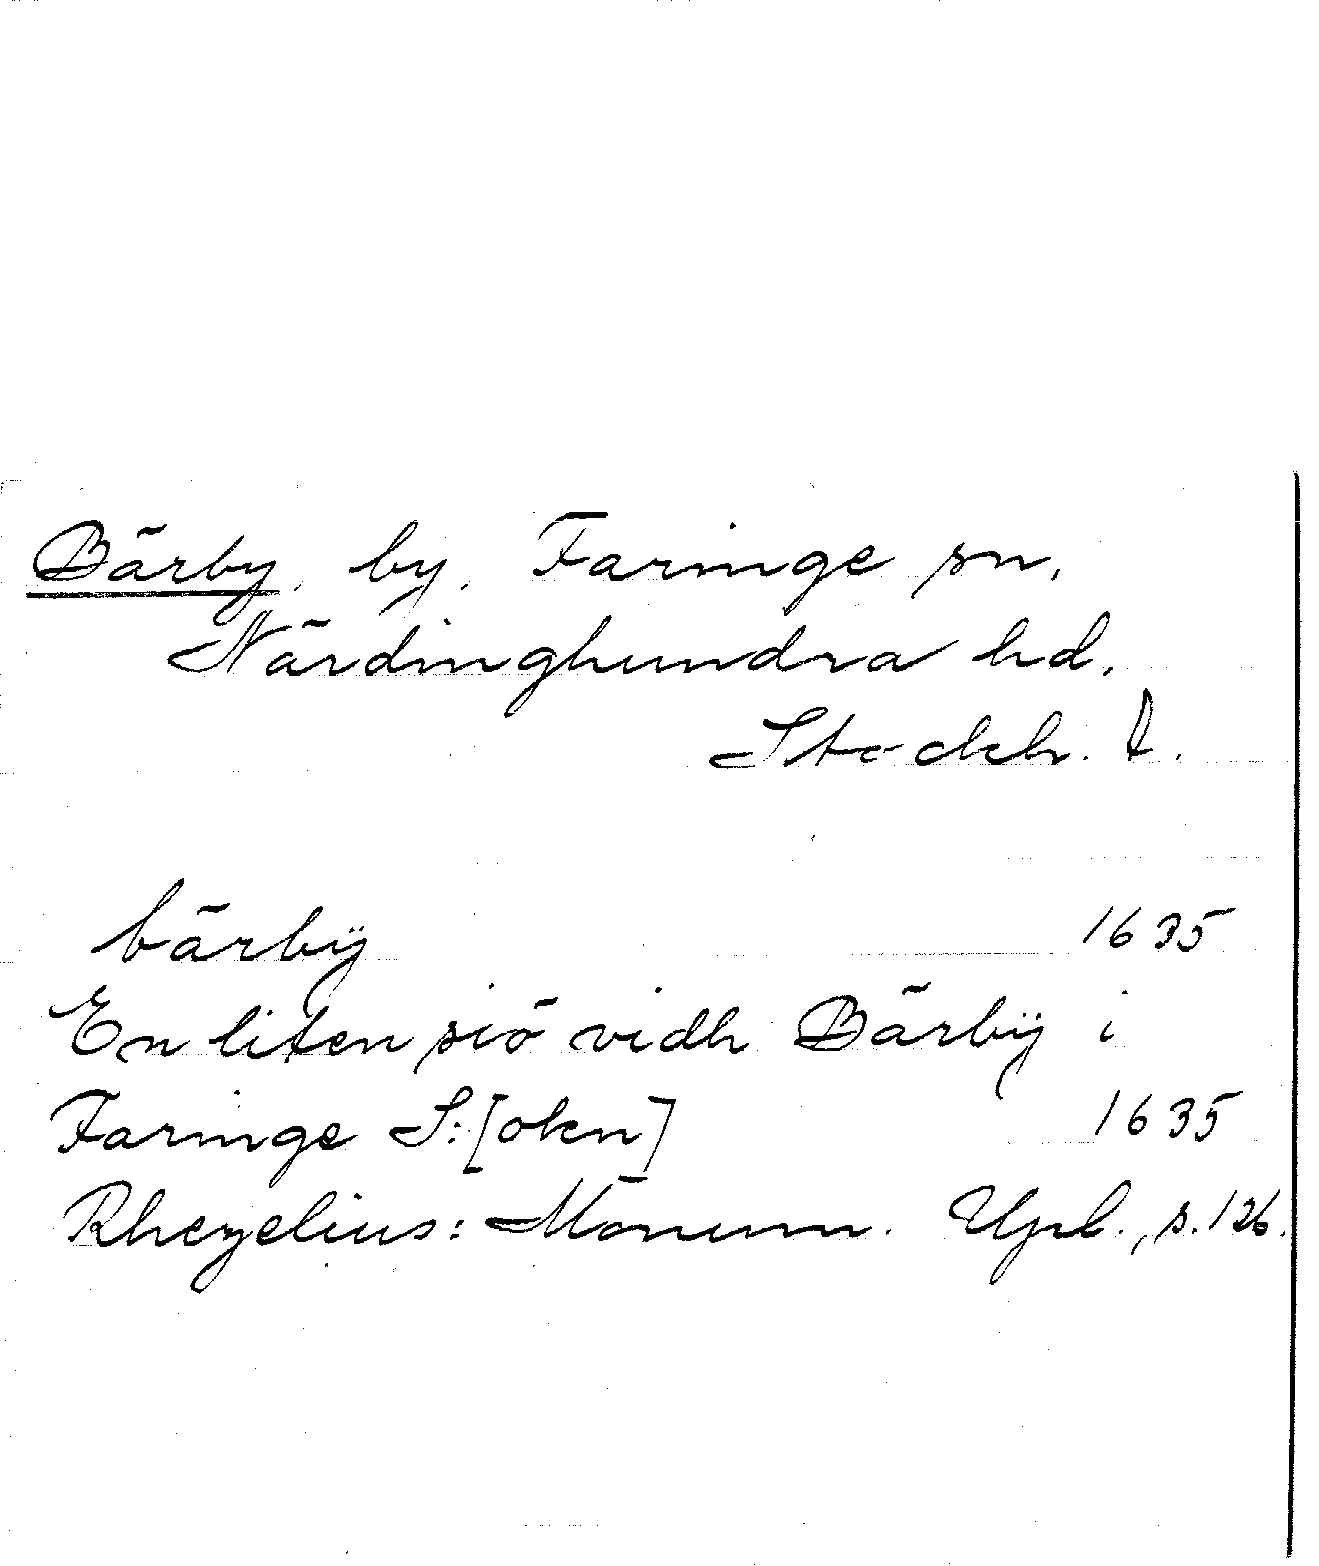 Bärby, by, Faringe sn,
Närdinghundra hd,
Stockh. l.
bärbÿ 1635
En liten siö vidh Bärbÿ i
Faringe S:[oken] 1635
Rhezelius: Monum. Upl., s. 126.